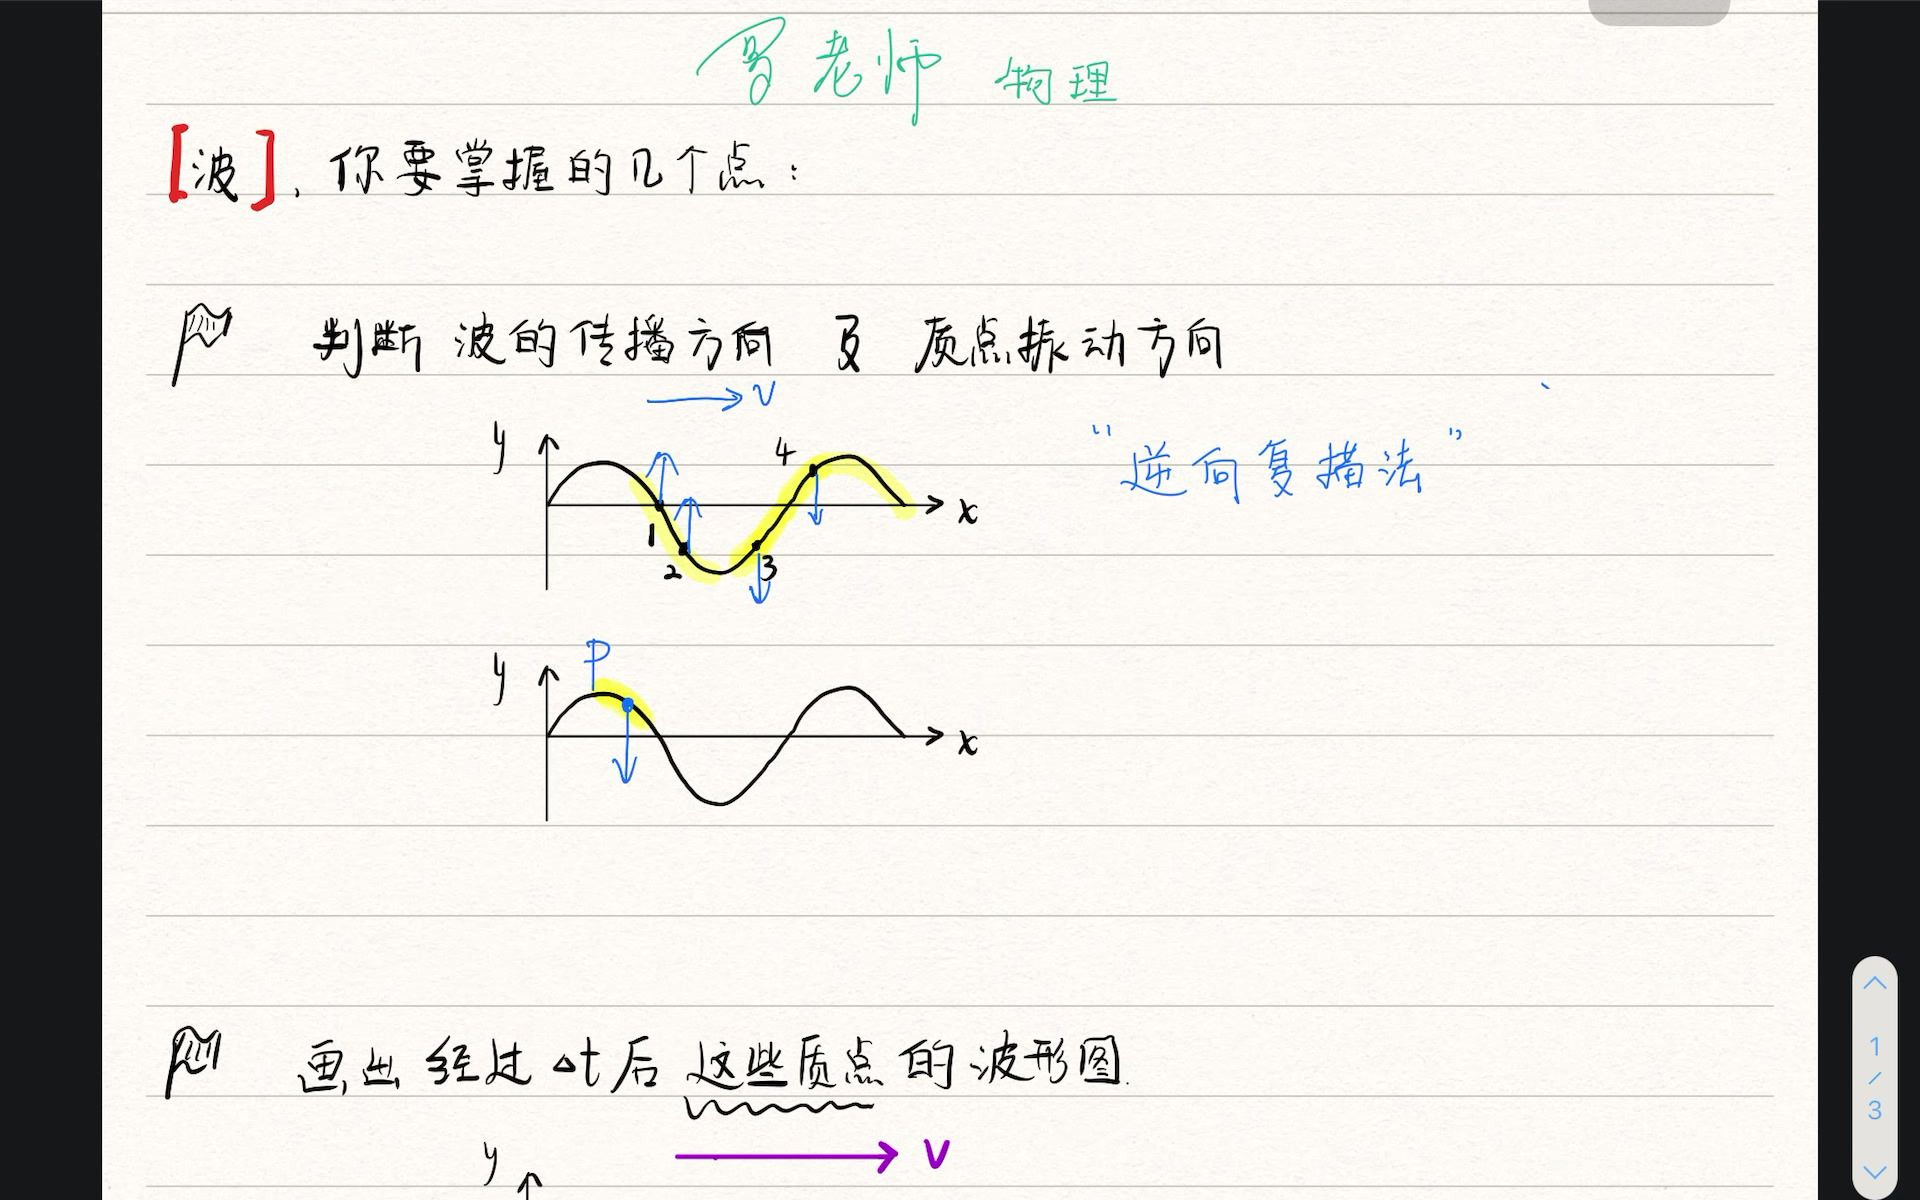 老师 物理
[波], 你要掌握的几个点:
判断波的传播方向及质点振动方向
v
y
4
1
2
3
x
"逆向复描法"
P
y
x
画出经过Δt后这些质点的波形图.
y
v
1
/
3